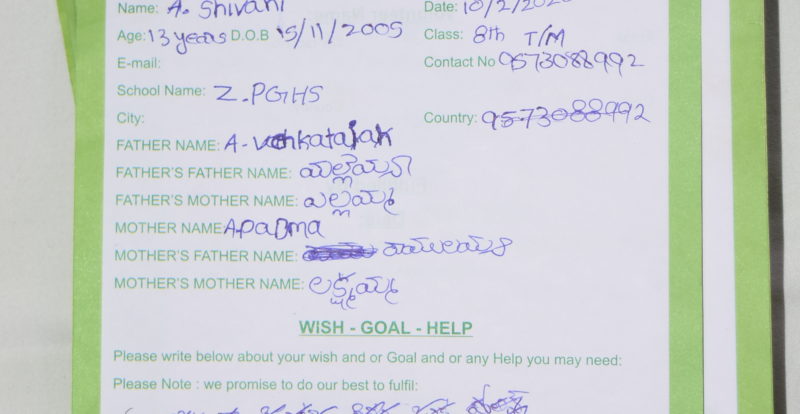 Name: A. Shivani Date: 10/2/2020
Age: 13 years D.O.B 15/11/2005 Class: 8th T/M
E-mail: Contact No 9573088992
School Name: Z.PGHS
City: Country: 9573088992
FATHER NAME: A. venkataiah
FATHER'S FATHER NAME: మల్లయ్య
FATHER'S MOTHER NAME: ఎల్లమ్మ
MOTHER NAME A padma
MOTHER'S FATHER NAME: రాములయ్య
MOTHER'S MOTHER NAME: లక్ష్మమ్మ
WISH - GOAL - HELP
Please write below about your wish and or Goal and or any Help you may need:
Please Note : we promise to do our best to fulfil: